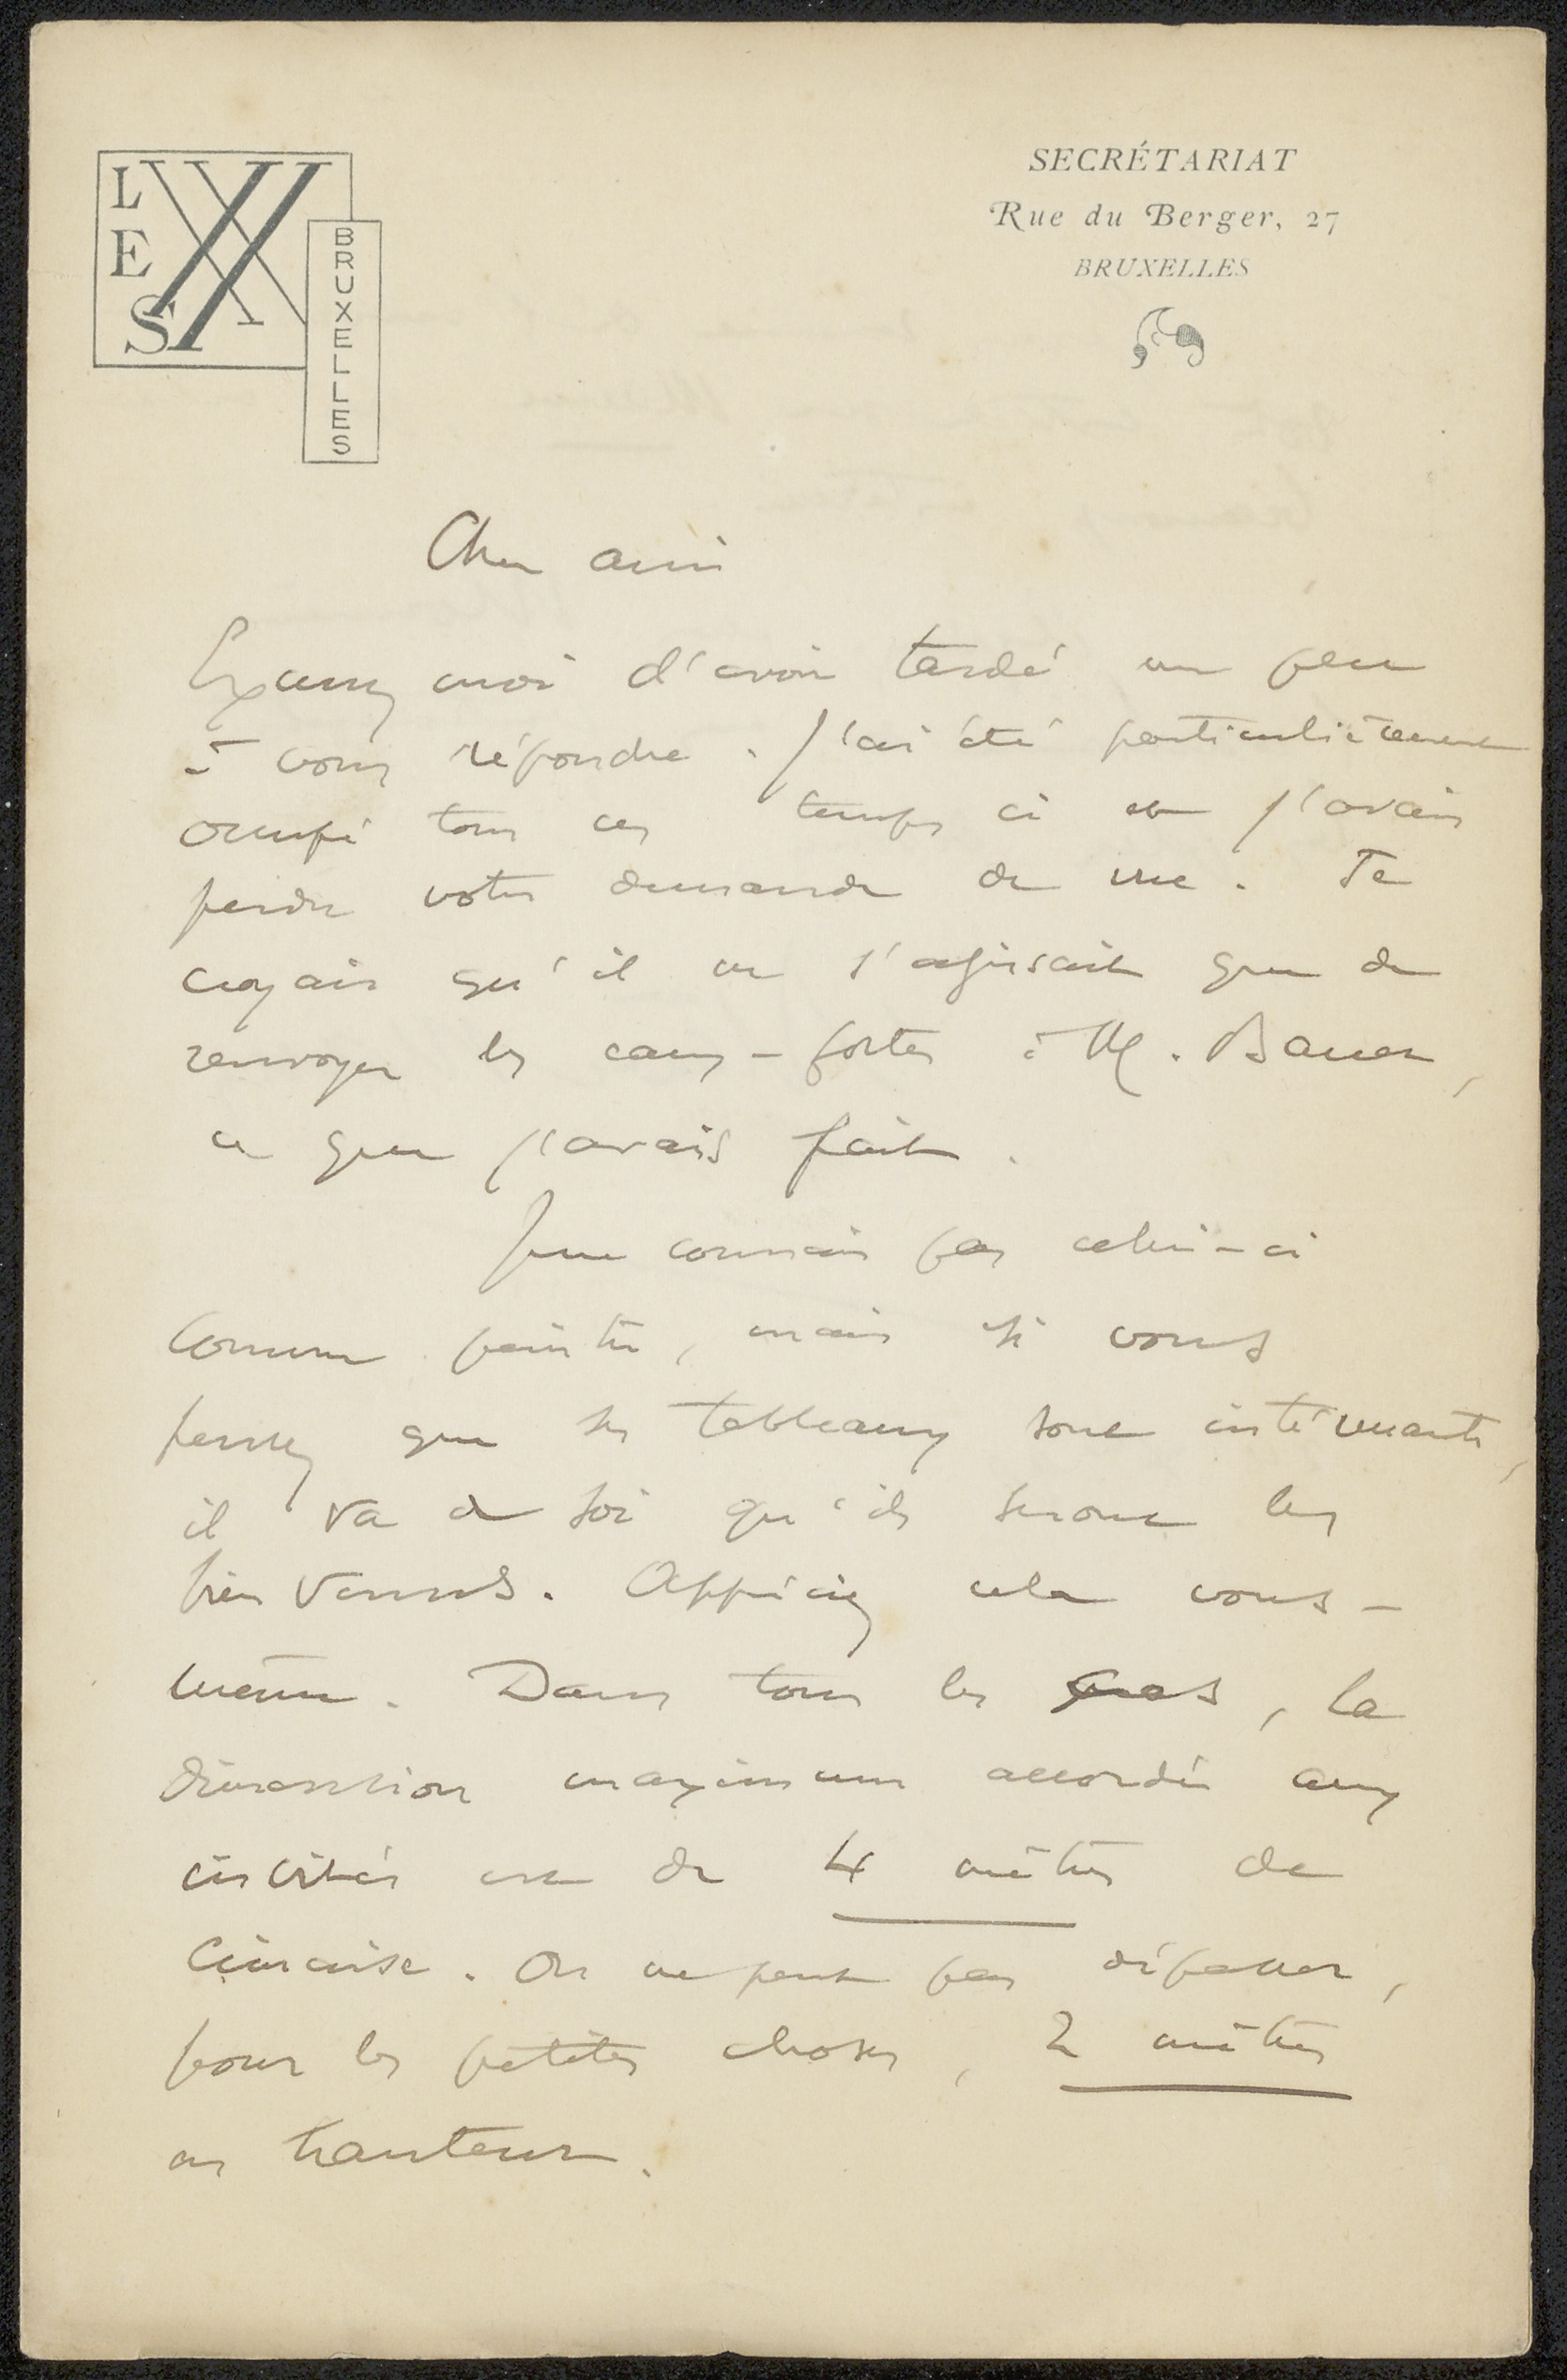 LES XX
BRUXELLES
SECRÉTARIAT
Rue du Berger, 27
BRUXELLES
Cher ami
Excusez moi d'avoir tardé un peu
à vous répondre. J'ai été particulièrement
occupé tous ces temps ci et j'avais
perdu votre demande de vue. Je
croyais qu'il ne s'agissait que de
renvoyer les eaux-fortes à M. Bauer,
ce que j'avais fait.
Je ne connais pas celui-ci
comme peintre, mais si vous
pensez que ses tableaux sont intéressants,
il va de soi qu'ils seront les
bien venus. Appréciez cela vous-
même. Dans tous les cas, la
dimension maximum accordée aux
invités est de 4 mètres de
cimaise. On ne peut pas dépasser,
pour les petites choses, 2 mètres
en hauteur.